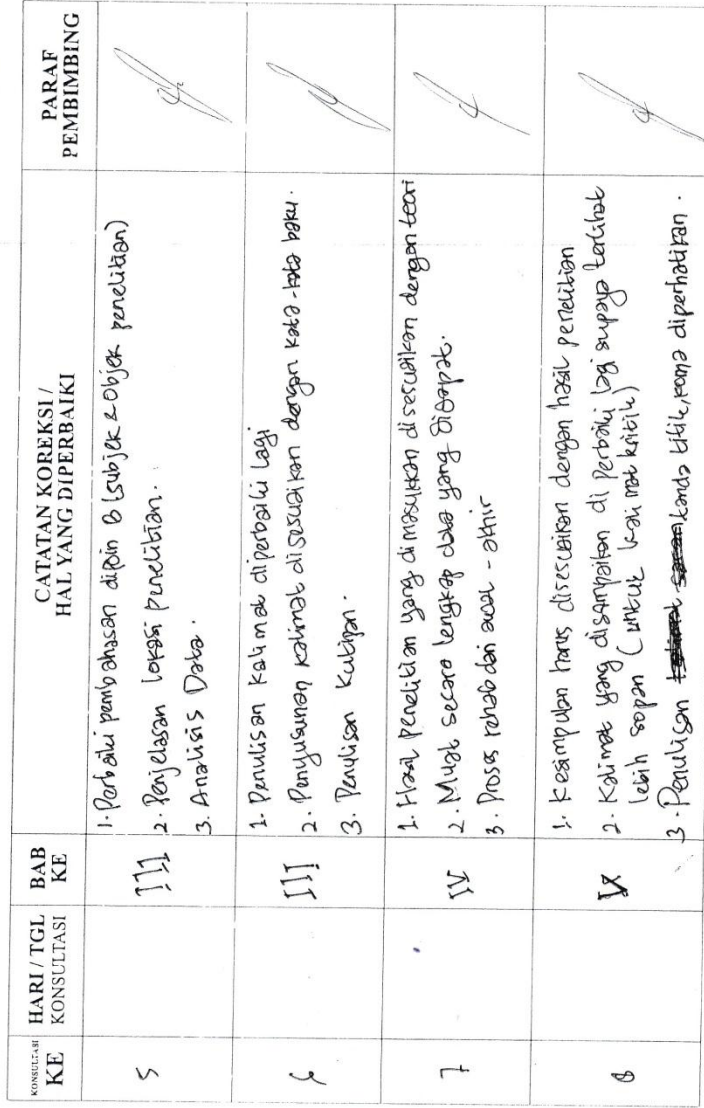 KONSULTASI
KE
HARI / TGL
KONSULTASI
BAB
KE
CATATAN KOREKSI /
HAL YANG DIPERBAIKI
PARAF
PEMBIMBING
5
III
1. Perbaiki pembahasan dipoin B (subjek & objek penelitian)
2. Penjelasan lokasi penelitian.
3. Analisis Data.
6
III
1. Penulisan kalimat diperbaiki lagi
2. Penyusunan kalimat disesuaikan dengan kata-kata baku.
3. Penulisan kutipan.
7
IV
1. Hasil penelitian yang dimasukkan disesuaikan dengan teori
2. Muat secara lengkap data yang didapat.
3. Proses rehab dari awal - akhir
8
1. Kesimpulan harus disesuaikan dengan hasil penelitian
2. Kalimat yang disampaikan di perbaiki lagi supaya terlihat
lebih sopan (untuk kalimat kritik)
3. Penulisan tanda titik, koma diperhatikan.